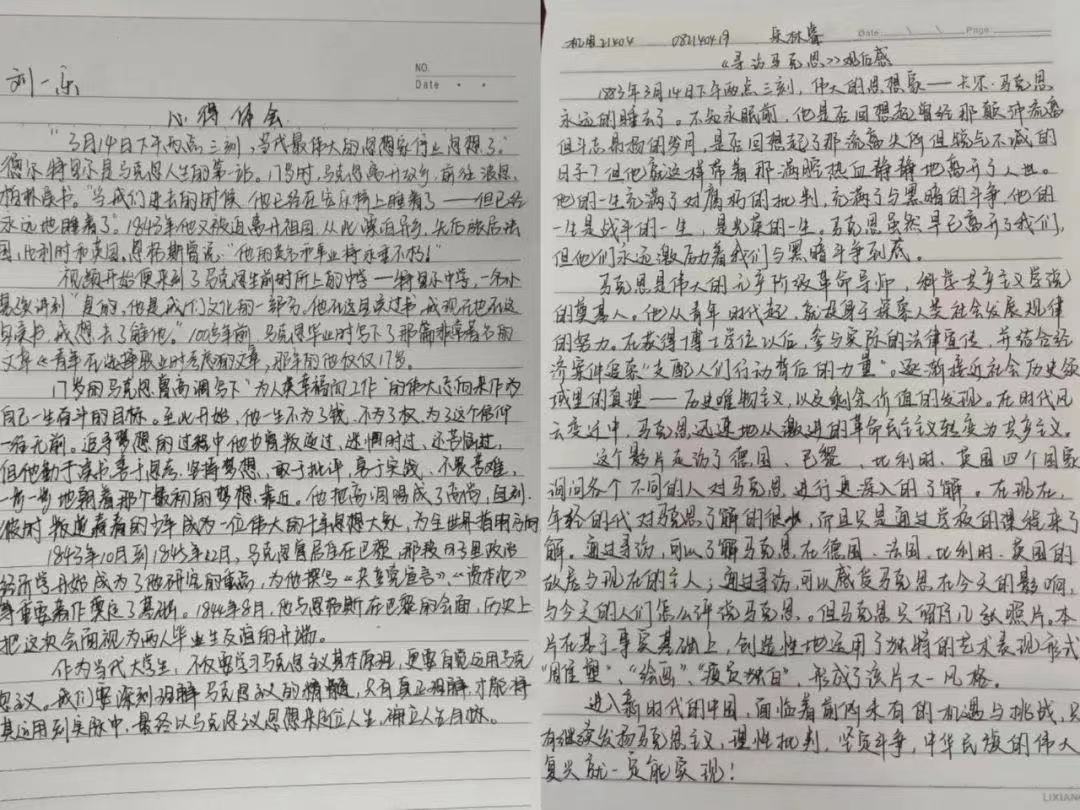 刘一
NO.
Date
心得体会
"3月14日下午两点三刻,当代最伟大的思想家停止思想了。"
德尔特里尔是马克思人生的第一站。17岁时,马克思离开故乡,前往波恩、
柏林读书。"当我们进去的时候,他已经在安乐椅上睡着了——但已经
永远地睡着了。"1843年他又被迫离开祖国,从此漂泊异乡,先后旅居法
国,比利时和英国。恩格斯曾说:"他的英名和事业将永垂不朽!"
视频开始便来到了马克思生前时所上的中学——特里尔中学,一名小
男孩讲到"是的,他是我们文化的一部分。他在这里读过书,我现在也在这
里读书,我想去了解他。"100多年前,马克思毕业时写下了那篇非常著名的
文章《青年在选择职业时考虑的文章,那年的他仅仅17岁。
17岁的马克思曾高调写下"为人类幸福而工作"的伟大志向来作为
自己一生奋斗的目标。至此开始,他一生不为了钱、不为了权、为了这个信仰
一往无前。追寻梦想的过程中他也曾叛逆过,迷惘过,还苦恼过,
但他勤于读书善于思考,坚守梦想,敢于批评,勇于实践,不畏苦难,
一步一步地朝着那个最初的梦想靠近。他把高调唱成了高尚,
叛逆着的少年成为一位伟大的千年思想大家,为全世界指明方向
1843年10月到1845年12月,马克思曾居住在巴黎,那段日子里政治
经济学开始成为了他研究的重点,为他撰写《共产党宣言》、《资本论》
等重要著作奠定了基础。1844年8月,他与恩格斯在巴黎的会面,历史上
把这次会面视为两人毕业生友谊的开端。
作为当代大学生,不仅要学习马克思主义基本原理,更要自觉运用马克
思主义。我们要深刻理解马克思主义的精髓,只有真正理解,才能将
其运用到实际中,最终以马克思主义思想来定位人生,确立人生目标。
机电21404 082140419 林睿
Date Page
《寻访马克思》观后感
1883年3月14日下午两点三刻,伟大的思想家——卡尔·马克思
永远的睡去了。不知永眠前,他是否回想起曾经那颠沛流离
但斗志昂扬的岁月,是否回想起了那流离失所但锐气不减的
日子?但他就这样带着那满腔热血静静地离开了人世。
他的一生充满了对腐朽的批判,充满了与黑暗的斗争,他的
一生是战斗的一生,是光荣的一生。马克思虽然早已离开了我们,
但他们永远激励着我们与黑暗斗争到底。
马克思是伟大的无产阶级革命导师,科学共产主义学说
的奠基人。他从青年时代起,就投身于探索人类社会发展规律
的努力。在获得博士学位以后,参与实际的法律宣传,并结合经
济案件追索"支配人们行动背后的力量"。逐渐接近社会历史领
域里的真理——历史唯物主义,以及剩余价值的发现。在时代风
云变迁中,马克思迅速地从激进的革命民主主义转变为共产主义。
这个影片走访了德国、巴黎、比利时、英国四个国家
询问各个不同的人对马克思进行更深入的了解。在现在,
年轻的代对马克思了解的很少,而且只是通过学校的课程来了
解。通过寻访,可以了解马克思在德国、法国、比利时、英国的
故居与现在的主人;通过寻访,可以感受马克思在今天的影响,
与今天的人们怎么评说马克思。但马克思只留有几张照片。本
片在基于事实基础上,创造性地运用了独特的艺术表现形式
"雕塑"、"绘画"、"演员独白",形成了该片又一风格。
进入新时代的中国,面临着前所未有的机遇与挑战,只
有继续发扬马克思主义,理性批判,坚定斗争,中华民族的伟大
复兴就一定能实现!
LIXIANG